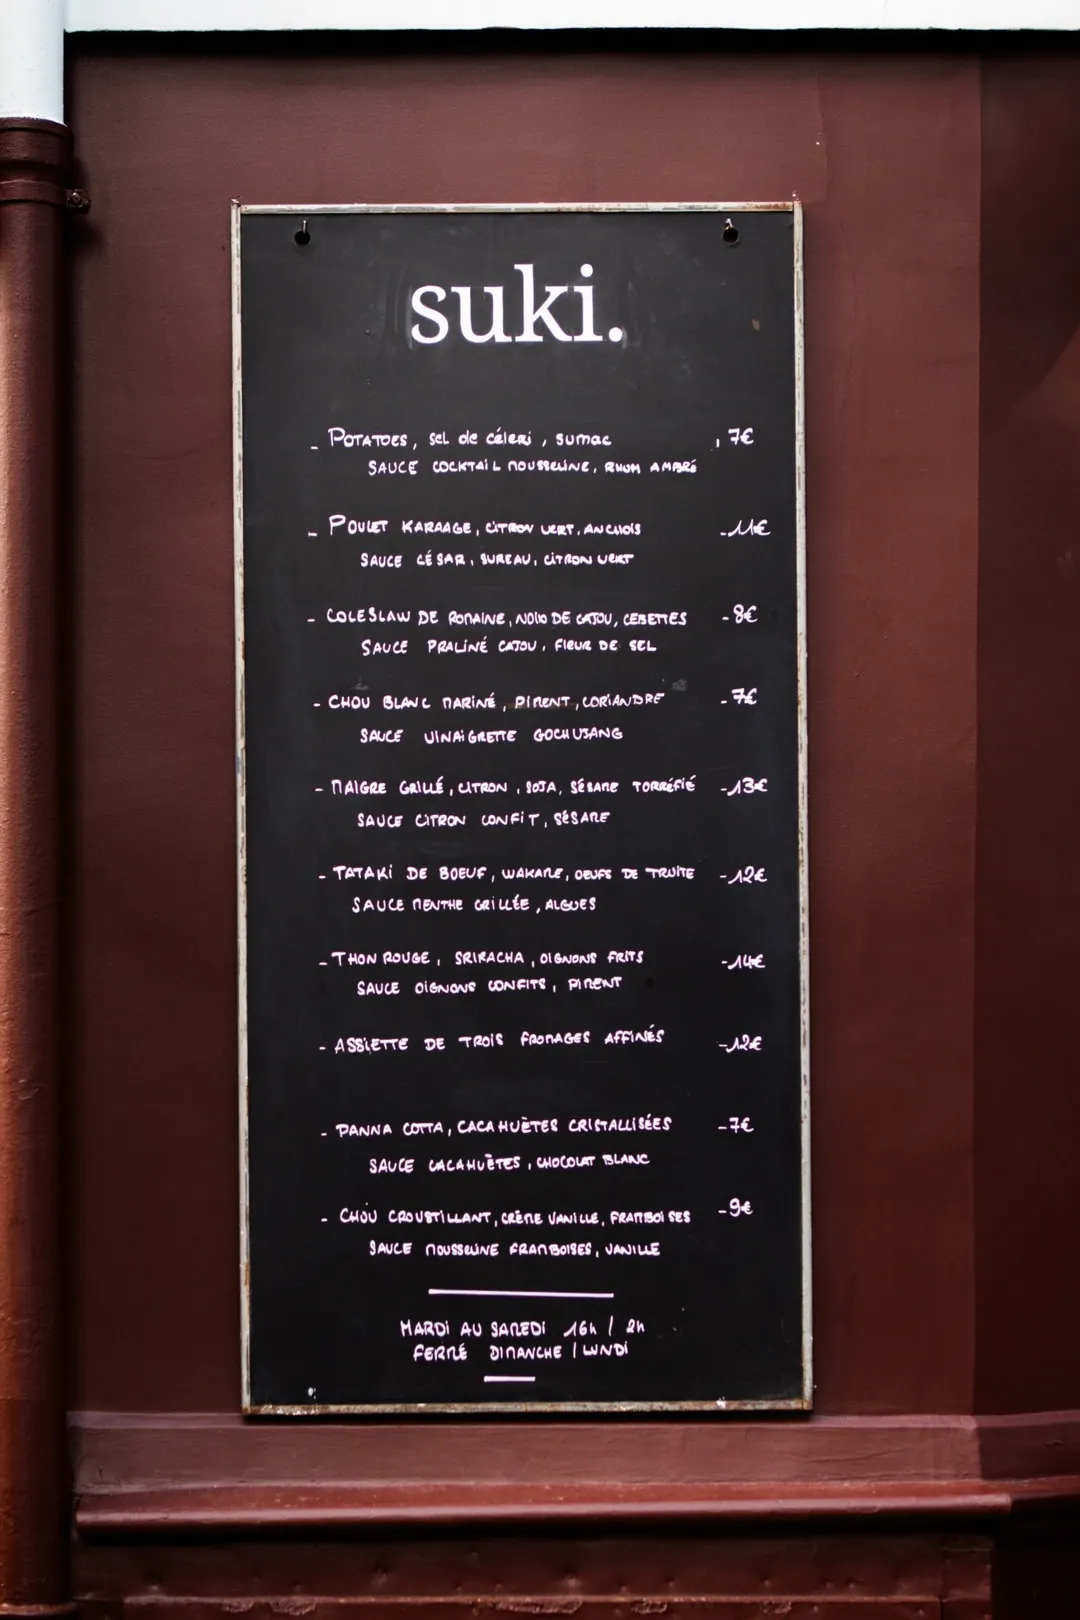 suki.
- POTATOES, SEL de CÉLERI, SUMAC , 7€
SAUCE COCKTAIL MOUSSELINE, RHUM AMBRÉ
- POULET KARAAGE, CITRON VERT, ANCHOIS - 11€
SAUCE CÉSAR, SUREAU, CITRON VERT
- COLESLAW DE ROMAINE, NOIX DE CAJOU, CEBETTES - 8€
SAUCE PRALINÉ CAJOU, FLEUR DE SEL
- CHOU BLANC MARINÉ, PIMENT, CORIANDRE - 7€
SAUCE VINAIGRETTE GOCHUJANG
- MAIGRE GRILLÉ, CITRON, SOJA, SÉSAME TORRÉFIÉ - 13€
SAUCE CITRON CONFIT, SÉSAME
- TATAKI DE BOEUF, WAKAME, OEUFS DE TRUITE - 12€
SAUCE MENTHE GRILLÉE, ALGUES
- THON ROUGE, SRIRACHA, OIGNONS FRITS - 14€
SAUCE OIGNONS CONFITS, PIMENT
- ASSIETTE DE TROIS FROMAGES AFFINÉS - 12€
- PANNA COTTA, CACAHUÈTES CRISTALLISÉES - 7€
SAUCE CACAHUÈTES, CHOCOLAT BLANC
- CHOU CROUSTILLANT, CRÈME VANILLE, FRAMBOISES - 9€
SAUCE MOUSSELINE FRAMBOISES, VANILLE
MARDI AU SAMEDI 16h / 2h
FERMÉ DIMANCHE / LUNDI